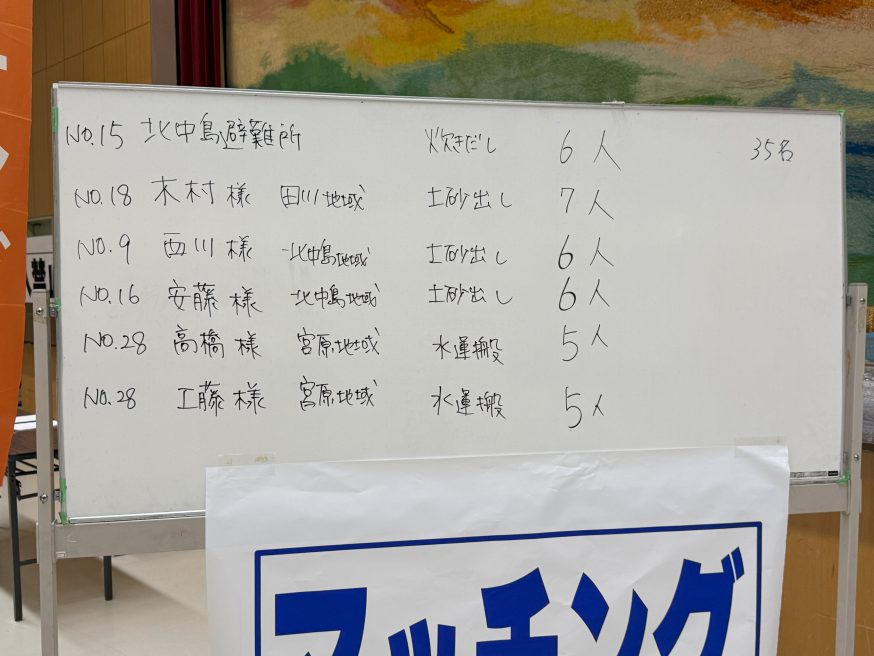 No.15 北中島避難所 炊きだし 6人 35名
No.18 木村様 田川地域 土砂出し 7人
No.9 西川様 北中島地域 土砂出し 6人
No.16 安藤様 北中島地域 土砂出し 6人
No.28 高橋様 宮原地域 水運搬 5人
No.28 工藤様 宮原地域 水運搬 5人
マッチング